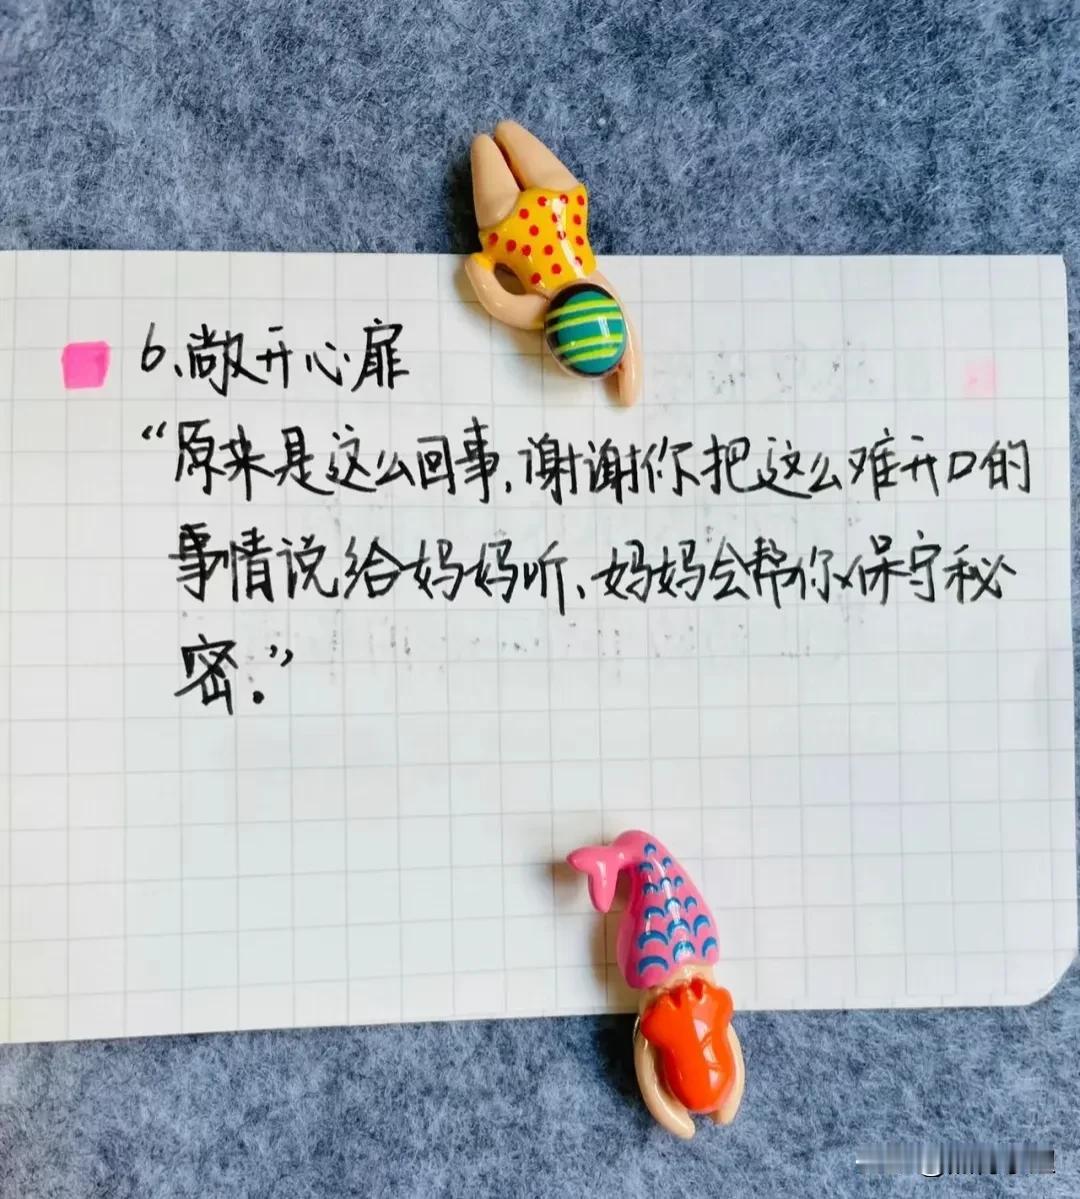 6、敞开心扉
“原来是这么回事,谢谢你把这么难开口的
事情说给妈妈听、妈妈会帮你保守秘
密.”